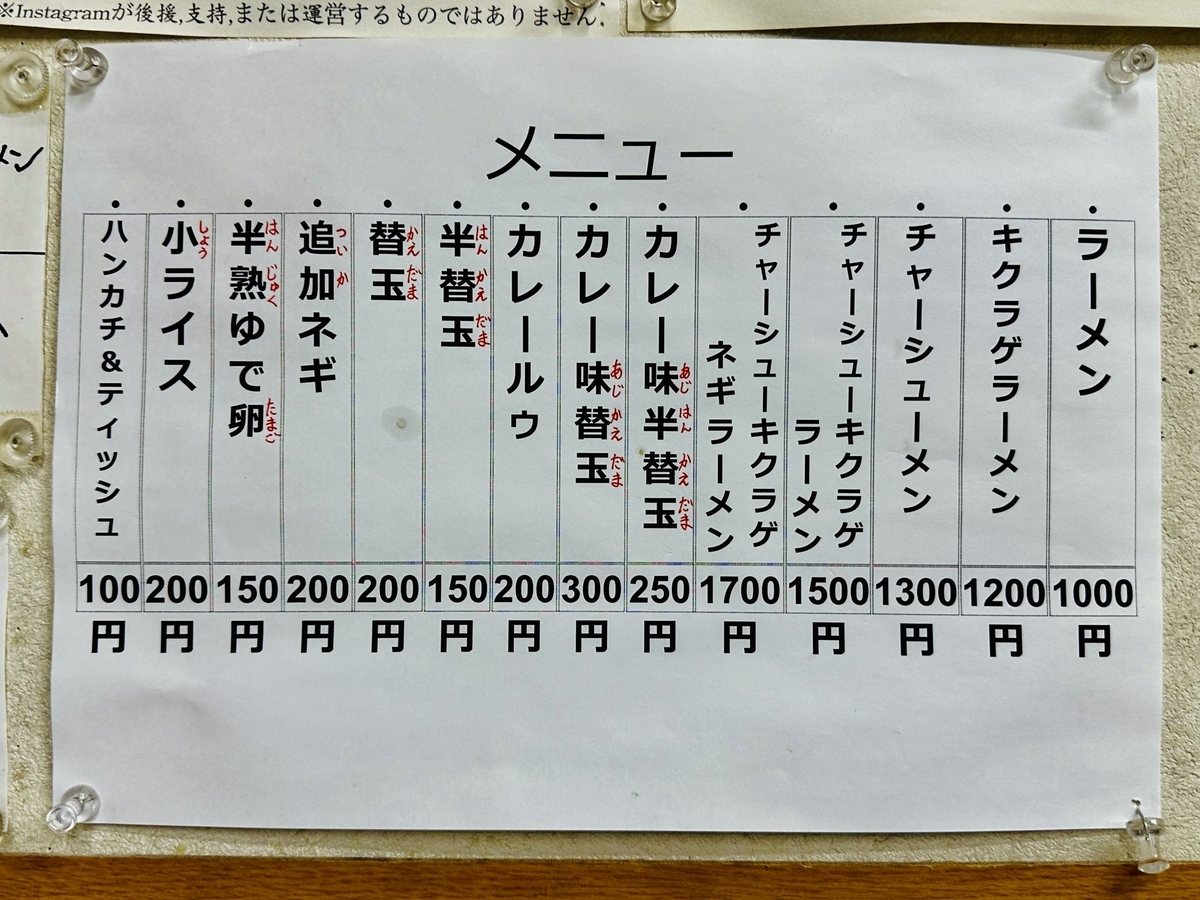 ※Instagramが後援,支持,または運営するものではありません.
メニュー
・ラーメン
1000円
・キクラゲラーメン
1200円
・チャーシューメン
1300円
・チャーシューキクラゲ
ラーメン
1500円
・チャーシューキクラゲ
ネギラーメン
1700円
・カレー味半替玉
あじ はん かえ だま
250円
・カレー味替玉
あじ かえ だま
300円
・カレールゥ
200円
・半替玉
はん かえ だま
150円
・替玉
かえ だま
200円
・追加ネギ
つい か
200円
・半熟ゆで卵
はん じゅく たまご
150円
・小ライス
しょう
200円
・ハンカチ&ティッシュ
100円